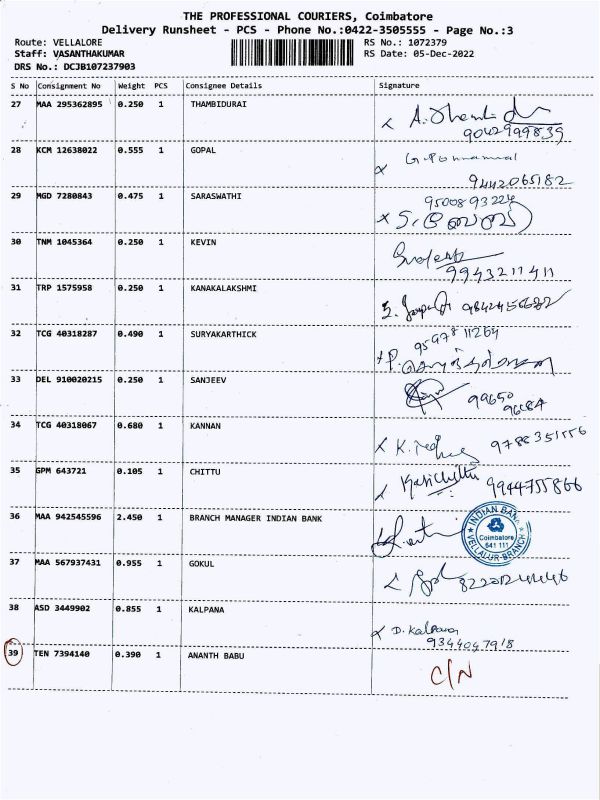 THE PROFESSIONAL COURIERS, Coimbatore
Delivery Runsheet - PCS - Phone No.:0422-3505555 - Page No.:3
Route: VELLALORE
RS No.: 1072379
Staff: VASANTHAKUMAR
RS Date: 05-Dec-2022
DRS No.: DCJB107237903
S No Consignment No Weight PCS Consignee Details Signature
27 MAA 295362895 0.250 1 THAMBIDURAI
9042999839
28 KCM 12638022 0.555 1 GOPAL
9442065182
29 MGD 7280843 0.475 1 SARASWATHI
9500893224
30 TNM 1045364 0.250 1 KEVIN
9943211411
31 TRP 1575958 0.250 1 KANAKALAKSHMI
32 TCG 40318287 0.490 1 SURYAKARTHICK
9597811264
33 DEL 910020215 0.250 1 SANJEEV
99650
34 TCG 40318067 0.680 1 KANNAN
9788351556
35 GPM 643721 0.105 1 CHITTU
9944755866
36 MAA 942545596 2.450 1 BRANCH MANAGER INDIAN BANK
INDIAN BANK
Coimbatore
641 111
VELLALUR-BRANCH
37 MAA 567937431 0.955 1 GOKUL
38 ASD 3449902 0.855 1 KALPANA
D. Kalpana
9344047918
39 TEN 7394140 0.390 1 ANANTH BABU
C/N